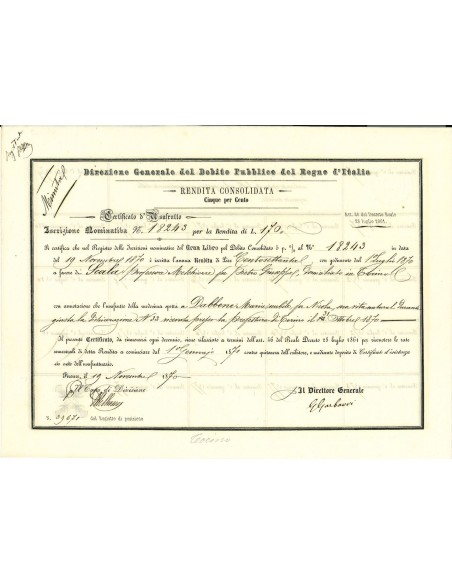 Direzione Generale del Debito Pubblico del Regno d'Italia
RENDITA CONSOLIDATA
Cinque per Cento
Certificato d'Usufrutto
Art. 48 del Decreto Reale
28 luglio 1861.
Iscrizione Nominativa N. 18243 per la Rendita di L. 170
Si certifica che sul Registro delle Iscrizioni nominative del GRAN LIBRO pel Debito Consolidato 5 p. % al N° 18243 in data
del 19 Novembre 1870 è iscritta l'annua Rendita di Lire Centosettanta con godimento dal 1° Luglio 1870
a favore di Scala Professore Melchiorre fu Pietro Giuseppe, domiciliato in Torino
con annotazione che l'usufrutto della medesima spetta a
giusta la dichiarazione N° 33 la prefettura di Torino il 31 1870
Il presente Certificato, da rinnovarsi ogni decennio, viene rilasciato a termini dell'art. 48 del Reale Decreto 28 luglio 1861 per riscuotere le rate
semestrali di detta Rendita a cominciare dal 1° Gennajo 1871 contro quitanza dell'esibitore, e mediante deposito di Certificato d'esistenza
in vita dell'usufruttuario.
Firenze, il 19 Novembre 1870
Il Capo di Divisione
Il Direttore Generale
N. del Registro di posizione